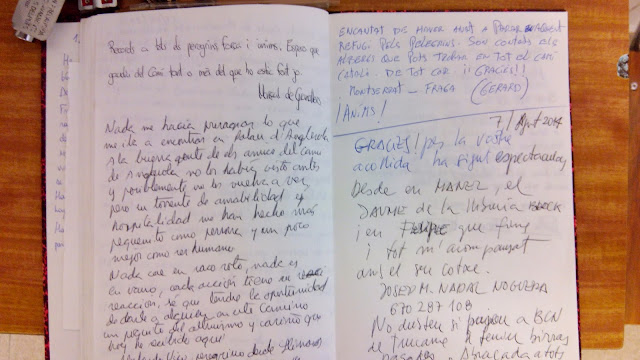 Records a tots els peregrins. Força i ànims. Espero que
gaudiu del Camí tant o més del que ho estic fent jo.
Nada me hacía presagiar lo que
me iba a encontrar en Palau d'Anglesola
a la buena gente de els amics del camí
de s no los había visto antes
y posiblemente no los vuelva a ver,
pero un torrente de amabilidad y
hospitalidad me han hecho más
pequeñito como persona y un poco
mejor como ser humano.
Nada cae en saco roto, nada es
en vano, cada acción tiene su
reacción, sé que tendré la oportunidad
de darle a alguien en este camino
un poquito del altruismo y cariño que
hoy he sentido aquí
peregrino desde
ENCANTAT DE HAVER ANAT A PARAR AQUEST
REFUGI PELS PELEGRINS. SON CONTATS ELS
ALBERGS QUE POTS TROBAR EN TOT EL CAMI
CATALÀ. DE TOT COR ¡¡GRACIES!!
MONTSERRAT - FRAGA (GERARD)
¡ANIMS!
7/ Agost 2014
GRACIES! per la vostre
acollida ha sigut espectacular
Desde en MANEL, el
JAUME de la llibreria
i en FELIPE que fins
i tot m'a acompanyat
amb el seu cotxe.
JOSEP M. NADAL NOGUERA
670 287 108
No dusteu si passeu a BCN
de trucarme i fem birras
pagades. Abraçada a tots